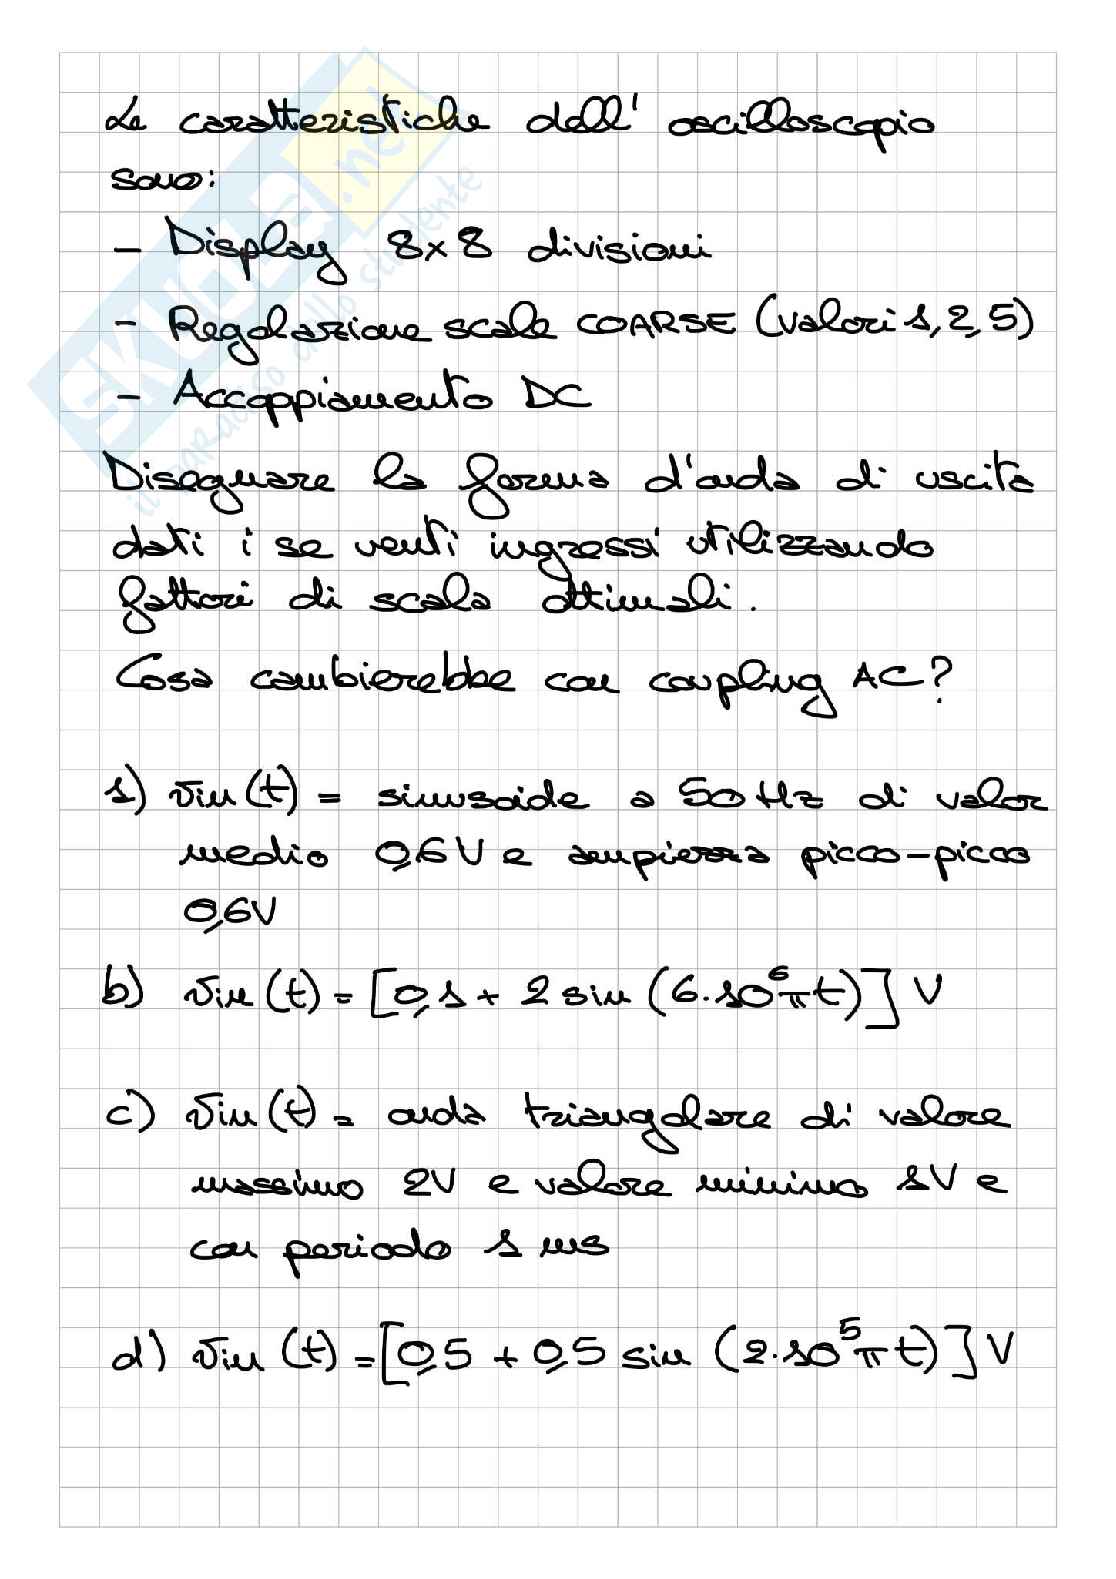 Le caratteristiche dell' oscilloscopio
sono:
- Display 8x8 divisioni
- Regolazione scale COARSE (valori 1, 2, 5)
- Accoppiamento DC
Disegnare la forma d'onda di uscita
dati i se uenti ingressi utilizzando
fattori di scala ottimali.
Cosa cambierebbe con coupling AC?
a) vin(t) = sinusoide a 50 Hz di valor
medio 0,6V e ampiezza picco-picco
0,6V
b) vin(t) = [0,1 + 2 sin (6·10⁶πt)] V
c) vin(t) = onda triangolare di valore
massimo 2V e valore minimo 1V e
con periodo 1 ms
d) vin (t) = [0,5 + 0,5 sin (2·10⁵πt)] V
SKUOLA.net
il paradiso dello studente